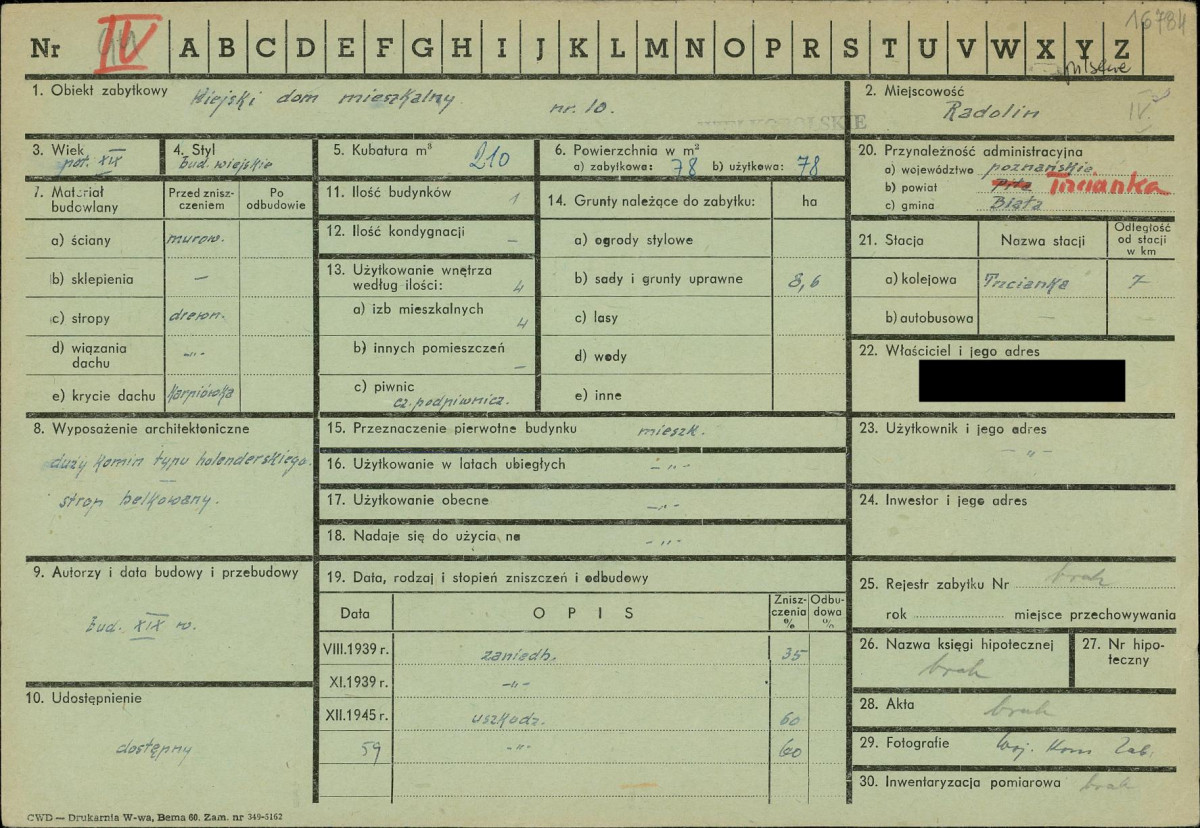 16784
Nr IV A B C D E F G H I J K L M N O P R S T U V W X Y Z
pilskie
1. Obiekt zabytkowy Wiejski dom mieszkalny nr. 10.
WIELKOPOLSKIE
2. Miejscowość
Radolin
IV
3. Wiek
poł. XIX
4. Styl
bud. wiejskie
5. Kubatura m³ 210
6. Powierzchnia w m²
a) zabytkowa: 78 b) użytkowa: 78
20. Przynależność administracyjna
a) województwo poznańskie
b) powiat Piła Trzcianka
c) gmina Biała
7. Materiał budowlany
Przed zniszczeniem
Po odbudowie
a) ściany murow.
b) sklepienia —
c) stropy drewn.
d) wiązania dachu -„-
e) krycie dachu karpiówka
11. Ilość budynków 1
12. Ilość kondygnacji —
13. Użytkowanie wnętrza
według ilości: 4
a) izb mieszkalnych 4
b) innych pomieszczeń —
c) piwnic
cz. podpiwnicz.
14. Grunty należące do zabytku: ha
a) ogrody stylowe
b) sady i grunty uprawne 8,6
c) lasy
d) wody
e) inne
21. Stacja Nazwa stacji Odległość od stacji w km
a) kolejowa Trzcianka 7
b) autobusowa — —
22. Właściciel i jego adres
8. Wyposażenie architektoniczne
duży komin typu holenderskiego.
strop belkowany.
15. Przeznaczenie pierwotne budynku mieszk.
16. Użytkowanie w latach ubiegłych -„-
17. Użytkowanie obecne -„-
18. Nadaje się do użycia na -„-
23. Użytkownik i jego adres
-„-
24. Inwestor i jego adres
9. Autorzy i data budowy i przebudowy
bud. XIX w.
10. Udostępnienie
dostępny
19. Data, rodzaj i stopień zniszczeń i odbudowy
Data O P I S Zniszczenia % Odbudowa %
VIII.1939 r. zaniedb. 35
XI.1939 r. -„-
XII.1945 r. uszkodz. 60
59 -„- 60
25. Rejestr zabytku Nr brak
rok miejsce przechowywania
26. Nazwa księgi hipotecznej
brak
27. Nr hipoteczny
28. Akta brak
29. Fotografie Woj. Kons Zab.
30. Inwentaryzacja pomiarowa brak
CWD — Drukarnia W-wa, Bema 60. Zam. nr 349-5162